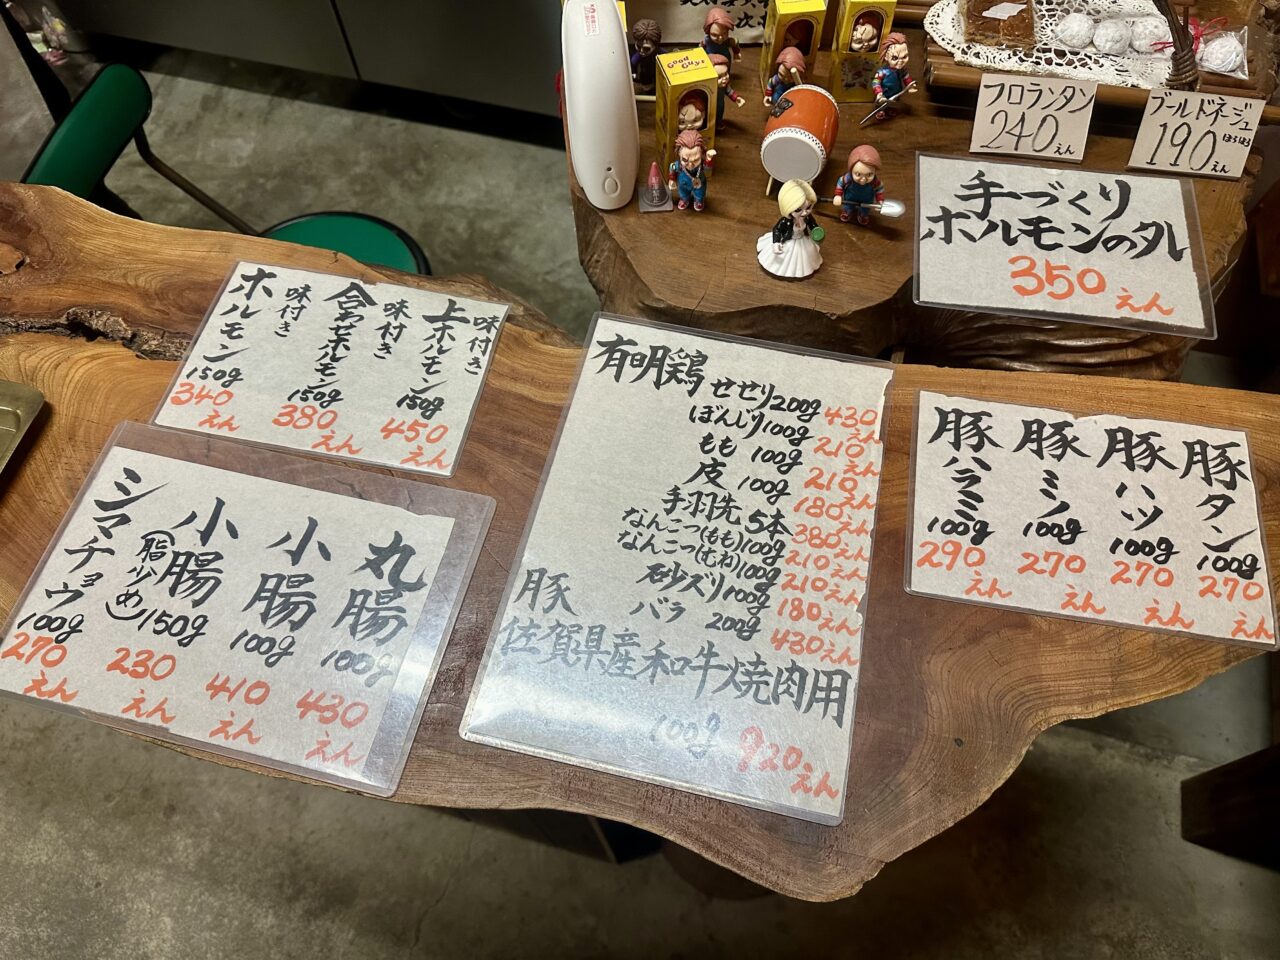 Good Guys
フロランタン
240えん
ブールドネージュ
ほろほろ
190えん
手づくり
ホルモンのタレ
350えん
味付き
上ホルモン
150g
450えん
味付き
合わせホルモン
150g
380えん
味付き
ホルモン
150g
340えん
丸腸
100g
430えん
小腸
100g
410えん
小腸
(脂少め)
150g
230えん
シマチョウ
100g
270えん
有明鶏
せせり200g 430えん
ぼんじり100g 210えん
もも 100g 210えん
皮 100g 180えん
手羽先 5本 380えん
なんこつ(もも)100g 210えん
なんこつ(むね)100g 210えん
砂ズリ100g 180えん
豚 バラ 200g 430えん
佐賀県産和牛焼肉用
100g 920えん
豚タン
100g
270えん
豚ハツ
100g
270えん
豚ミノ
100g
270えん
豚ハラミ
100g
290えん